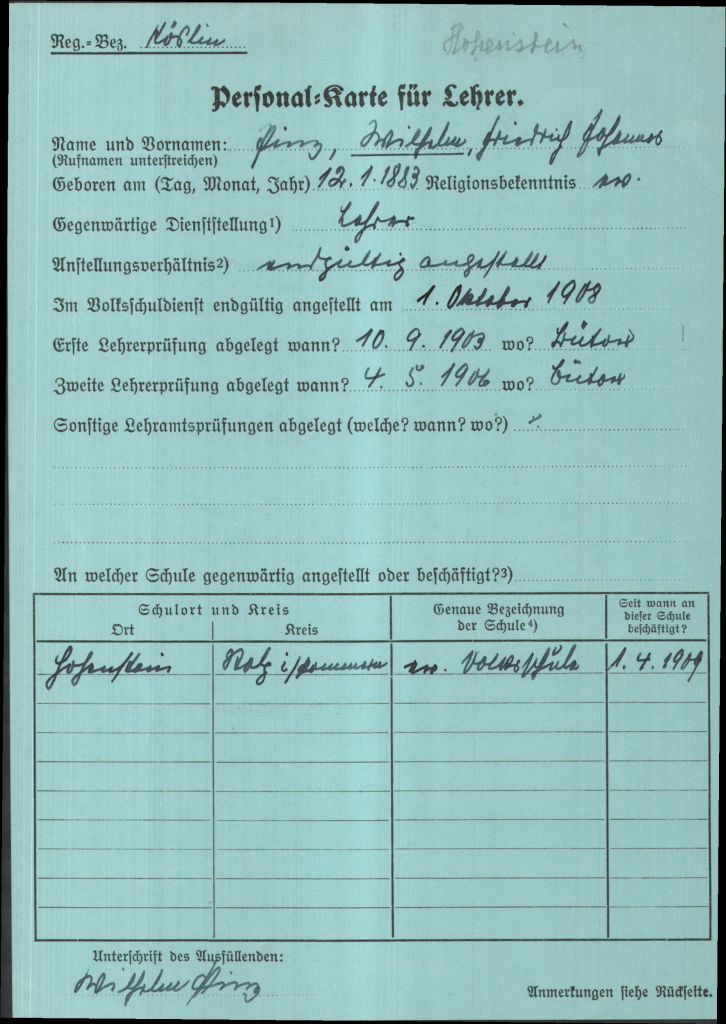 Reg.-Bez. Köslin
Hohenstein
Personal-Karte für Lehrer.
Name und Vornamen: Pinz, Wilhelm, Friedrich Johannes
(Rufnamen unterstreichen)
Geboren am (Tag, Monat, Jahr) 12. 1. 1883 Religionsbekenntnis ev.
Gegenwärtige Dienststellung¹) Lehrer
Anstellungsverhältnis²) endgültig angestellt
Im Volksschuldienst endgültig angestellt am 1. Oktober 1908
Erste Lehrerprüfung abgelegt wann? 10. 9. 1903 wo? Bütow
Zweite Lehrerprüfung abgelegt wann? 4. 5. 1906 wo? Bütow
Sonstige Lehramtsprüfungen abgelegt (welche? wann? wo?)
An welcher Schule gegenwärtig angestellt oder beschäftigt?³)
Schulort und Kreis
Ort
Kreis
Genaue Bezeichnung
der Schule⁴)
Seit wann an
dieser Schule
beschäftigt?
Hohenstein Stolp i/Pommern ev. Volksschule 1. 4. 1909
Unterschrift des Ausfüllenden:
Wilhelm Pinz
Anmerkungen siehe Rückseite.